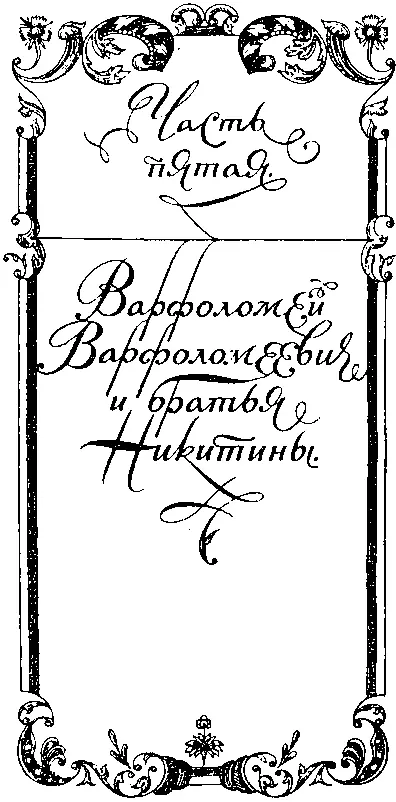 Часть
пятая.
Варфоломей
Варфоломеевич
и братья
Никитины.